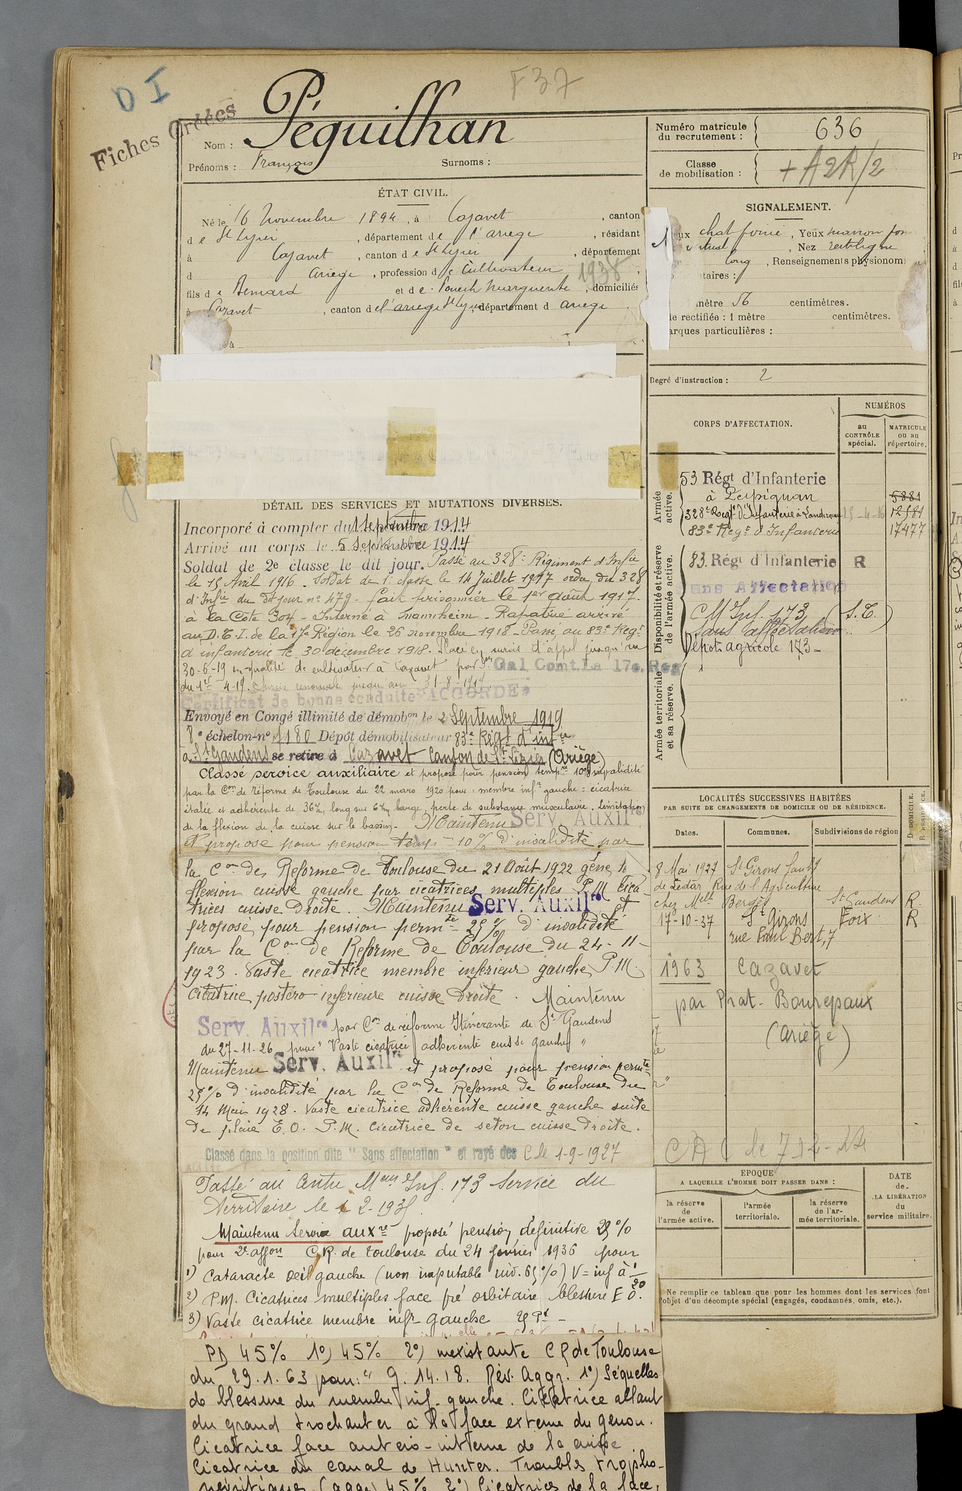 D I
F37
Fiches Créées
Nom : Péguilhan
Prénoms : François Surnoms :
Numéro matricule du recrutement : 636
Classe de mobilisation : + A2R/2
ÉTAT CIVIL.
Né le 16 Novembre 1894, à Cazavet, canton
de St Lizier, département de l'ariege, résidant
à Cazavet, canton de St Lizier, département
d Ariege, profession de Cultivateur 1938
fils de Bernard et de Pouech Marguerite, domiciliés
à Cazavet, canton de l'ariege St Lizier, département d ariege
SIGNALEMENT.
chât foncé, Yeux marron fon
, Nez rectiligne
long, Renseignements physionom
taires :
mètre 56 centimètres.
le rectifiée : 1 mètre centimètres.
arques particulières :
Degré d'instruction : 2
CORPS D'AFFECTATION.
NUMÉROS
au CONTRÔLE spécial.
MATRICULE ou au répertoire.
Armée active.
53 Régt d'Infanterie
à Perpignan 5881
328e Regt d'Infanterie 15-4-16 12511
83e Regt d'Infanterie 17477
Disponibilité et réserve de l'armée active.
83. Régt d'Infanterie R
ans Affectation
CM Inf. 173 (S.T.)
Sans affectation
Dépôt agricole 183
Armée territoriale et sa réserve.
DÉTAIL DES SERVICES ET MUTATIONS DIVERSES.
Incorporé à compter du 1 Septembre 1914
Arrivé au corps le 5 Septembre 1914
Soldat de 2e classe le dit jour. Passé au 328e Régiment d'Infie
le 15 Avril 1916. Soldat de 1e classe le 14 juillet 1917 ordre du 328
d'Infie du dit jour no 479. fait prisonnier le 1er Août 1917
à la Côte 304 - Interné à Mannheim - Rapatrié arrivé
au D.T.I. de la 17e Région le 26 novembre 1918 - Passé au 83e Regt
d'infanterie le 30 décembre 1918. Placé en sursis d'appel jusqu'au
30-6-19 en qualité de cultivateur à Cazavet par Gal Comt. La 17e. Reg
du 1er 4-19. Sursis renouvelé jusqu'au 31-8-1919
Certificat de bonne conduite "ACCORDÉ"
Envoyé en Congé illimité de démobon le 2 Septembre 1919
8e échelon-no 1180 Dépôt démobilisateur 83e Régt d'infie
à St Gaudens se retire à Cazavet Canton de St Lizier (Ariège)
Classé service auxiliaire et proposé pour pension tempre 10% invalidité
par la Con de Réforme de Toulouse du 22 mars 1920 pour : membre infr gauche : cicatrice
étalée et adhérente de 36%, long sur 6%, large, perte de substance musculaire, limitation
de la flexion de la cuisse sur le bassin. Maintenu Serv. Auxilre
et proposé pour pension temp - 10% d'invalidité par
la Con de Réforme de Toulouse du 21 Août 1922 gêne à
flexion cuisse gauche par cicatrices multiples P.M. cica
trices cuisse Droite. Maintenu Serv. Auxilre et
proposé pour pension permte 25% d'invalidité
par la Con de Réforme de Toulouse du 24-11-
1923. Vaste cicatrice membre inférieur gauche P.M.
cicatrice postero inférieure cuisse Droite. Maintenu
Serv. Auxilre par Con de réforme Itinérante de St Gaudens
du 27-11-26 pour "Vaste cicatrice adhérente cuisse gauche"
Maintenu Serv. Auxilre et proposé pour pension permte
25% d'invalidité par la Con de Réforme de Toulouse du
14 Mai 1928. Vaste cicatrice adhérente cuisse gauche suite
de plaie E.O. P.M. cicatrice de seton cuisse droite.
Classé dans la position dite "Sans affectation" et rayé des C le 1-9-1927
Passé au Centre Meur Inf. 173 Service du
Territoire le 2-1935
Maintenu Service auxre proposé pension définitive 25%
pour 2e affon C.R. de Toulouse du 24 février 1936 pour
1) Cataracte oeil gauche (non imputable ind. 65%) V = inf à 1/20
2) P.M. Cicatrices multiples face pré orbitaire blessure E.O.
3) Vaste cicatrice membre infr gauche 25 Pt
PD 45% 1°) 45% 2°) inexistante CR de Toulouse
du 29.1.63 pour : " G. 14.18. Rév. Aggr. 1°) Séquelles
de blessure du membre inf. gauche. Cicatrice allant
du grand trochanter à la face externe du genou.
Cicatrice face antero-interne de la cuisse
Cicatrice du canal de Hunter. Troubles tropho-
névritiques (aggr) 45% 2°) Cicatrices de la face,
LOCALITÉS SUCCESSIVES HABITÉES
PAR SUITE DE CHANGEMENTS DE DOMICILE OU DE RÉSIDENCE.
Dates. Communes. Subdivisions de région
8 Mai 1927 St Girons
Rue de l'Agriculture
chez Melle St Gaudens R
17-10-37 St Girons Foix R
rue Paul Bert, 7
1963 Cazavet
par Prat-Bonrepaux
(Ariège)
EPOQUE
A LAQUELLE L'HOMME DOIT PASSER DANS :
la réserve de l'armée active.
l'armée territoriale.
la réserve de l'armée territoriale.
DATE de LA LIBÉRATION du service militaire.
Ne remplir ce tableau que pour les hommes dont les services font
l'objet d'un décompte spécial (engagés, condamnés, omis, etc.).